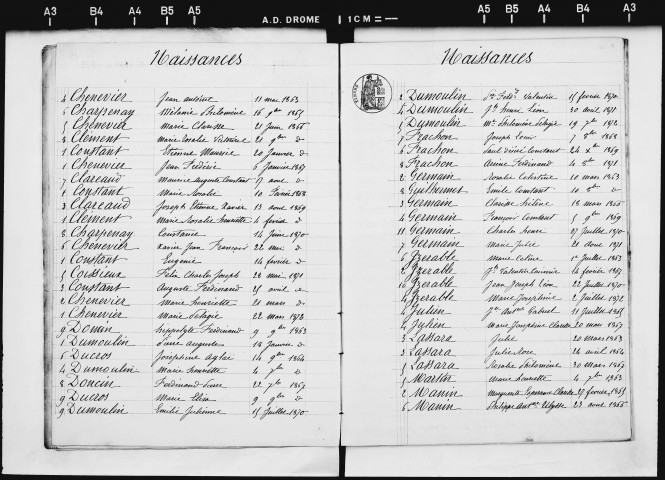 A3 B4 A4 B5 A5 A.D. DROME 1 CM A5 B5 A4 B4 A3
Naissances
4 Chenevier Jean antoine 11 mai 1863
6 Charpenay Mélanie Philomène 16 9bre 1865
5 Chenevier Marie Clarisse 21 Juin 1866
8 Clément Marie Rosalie Victoire 21 9bre d°
1 Constant Etienne Maurice 20 Janvier d°
1 Chenevier Jean Frédéric 6 Janvier 1867
7 Clareaud Maurice Auguste Constant 7 aout d°
1 Constant Marie Rosalie 10 Février 1868
3 Clareaud Joseph Etienne Xavier 13 aout 1869
1 Clément Marie Rosalie henriette 4 fevrier d°
8 Charpenay Constance 14 Juin 1870
6 Chenevier Xavier Jean François 22 mai d°
1 Constant Eugenie 14 fevrier d°
5 Coissieux Felix Charles Joseph 28 mai 1871
3 Constant Auguste Ferdinand 25 avril d°
2 Chenevier Marie henriette 21 mars d°
1 Chenevier Marie Pélagie 22 mars 1872
9 Domin hyppolyte Ferdinand 9 9bre 1863
1 Dumoulin auguste 18 Janvier d°
6 Ducros Joséphine Aglaé 14 9bre 1864
4 Dumoulin Marie henriette 4 7bre d°
8 Doncin Ferdinand 22 7bre 1867
9 Ducros Marie Elisa 9 9bre d°
9 Dumoulin Emilie Julienne 15 Juillet 1870
Naissances
2 Dumoulin Valentin 15 fevrier 1870
4 Dumoulin Jh henri Léon 30 avril 1871
5 Dumoulin Mie Philomène 19 7bre 1872
7 Frachon Joseph Louis 7 8bre 1868
6 Frachon Paul Constant 24 1869
8 Frachon Ferdinand 4 8bre 1871
2 Germain Rosalie Célestine 10 mars 1863
8 Guilhermet Emile Constant 10 8bre d°
3 Germain Clarisse hélène 18 mars 1866
4 Germain François Constant 5 9bre 1869
11 Germain Charles henri 27 Juillet 1870
7 Germain Marie Julie 21 aout 1871
6 Izerable Marie 1er Juillet 1863
2 Izerable Jh Valentin 14 fevrier 1867
10 Izerable Jean Joseph Léon 22 Juillet 1870
4 Izerable Marie Joséphine 2 Juillet 1872
4 Julien Gabriel 11 Juillet 1865
4 Julien Marie Joséphine 20 mai 1867
3 Lassara Julie 20 mars 1863
3 Lassara Julie Rose 26 avril 1864
5 Lassara Rosalie Philomène 30 mars 1867
5 Martin Marie henriette 4 7bre 1863
2 Manin Marguerite Clarisse 27 fevrier 1865
6 Manin Philippe Antne Ulysse 23 aout 1866